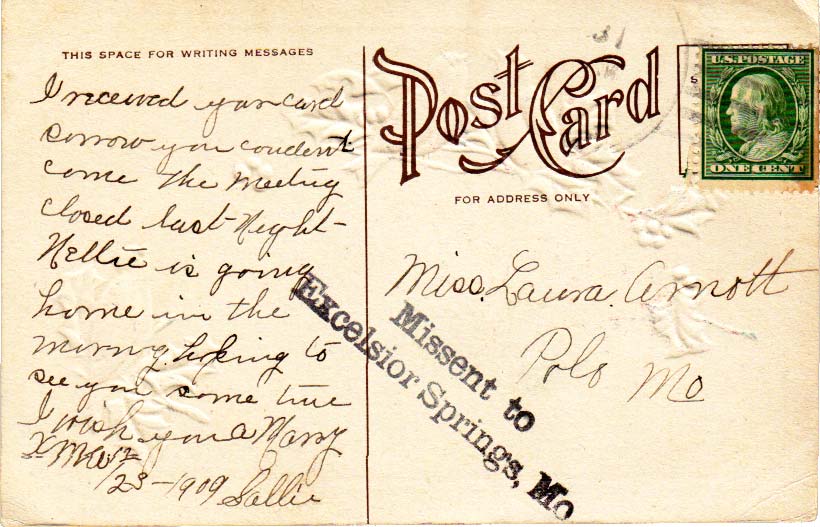 THIS SPACE FOR WRITING MESSAGES
I received your card
sorrow you couldent
come the meeting
closed last Night-
Nellie is going
home in the
morning. hoping to
see you some time
I wish you a Marry
X Mas
/23-1909 Sallie
Post Card
FOR ADDRESS ONLY
U.S. POSTAGE
ONE CENT
Miss. Laura. Arnott
Polo Mo
Missent to
Excelsior Springs, Mo
31